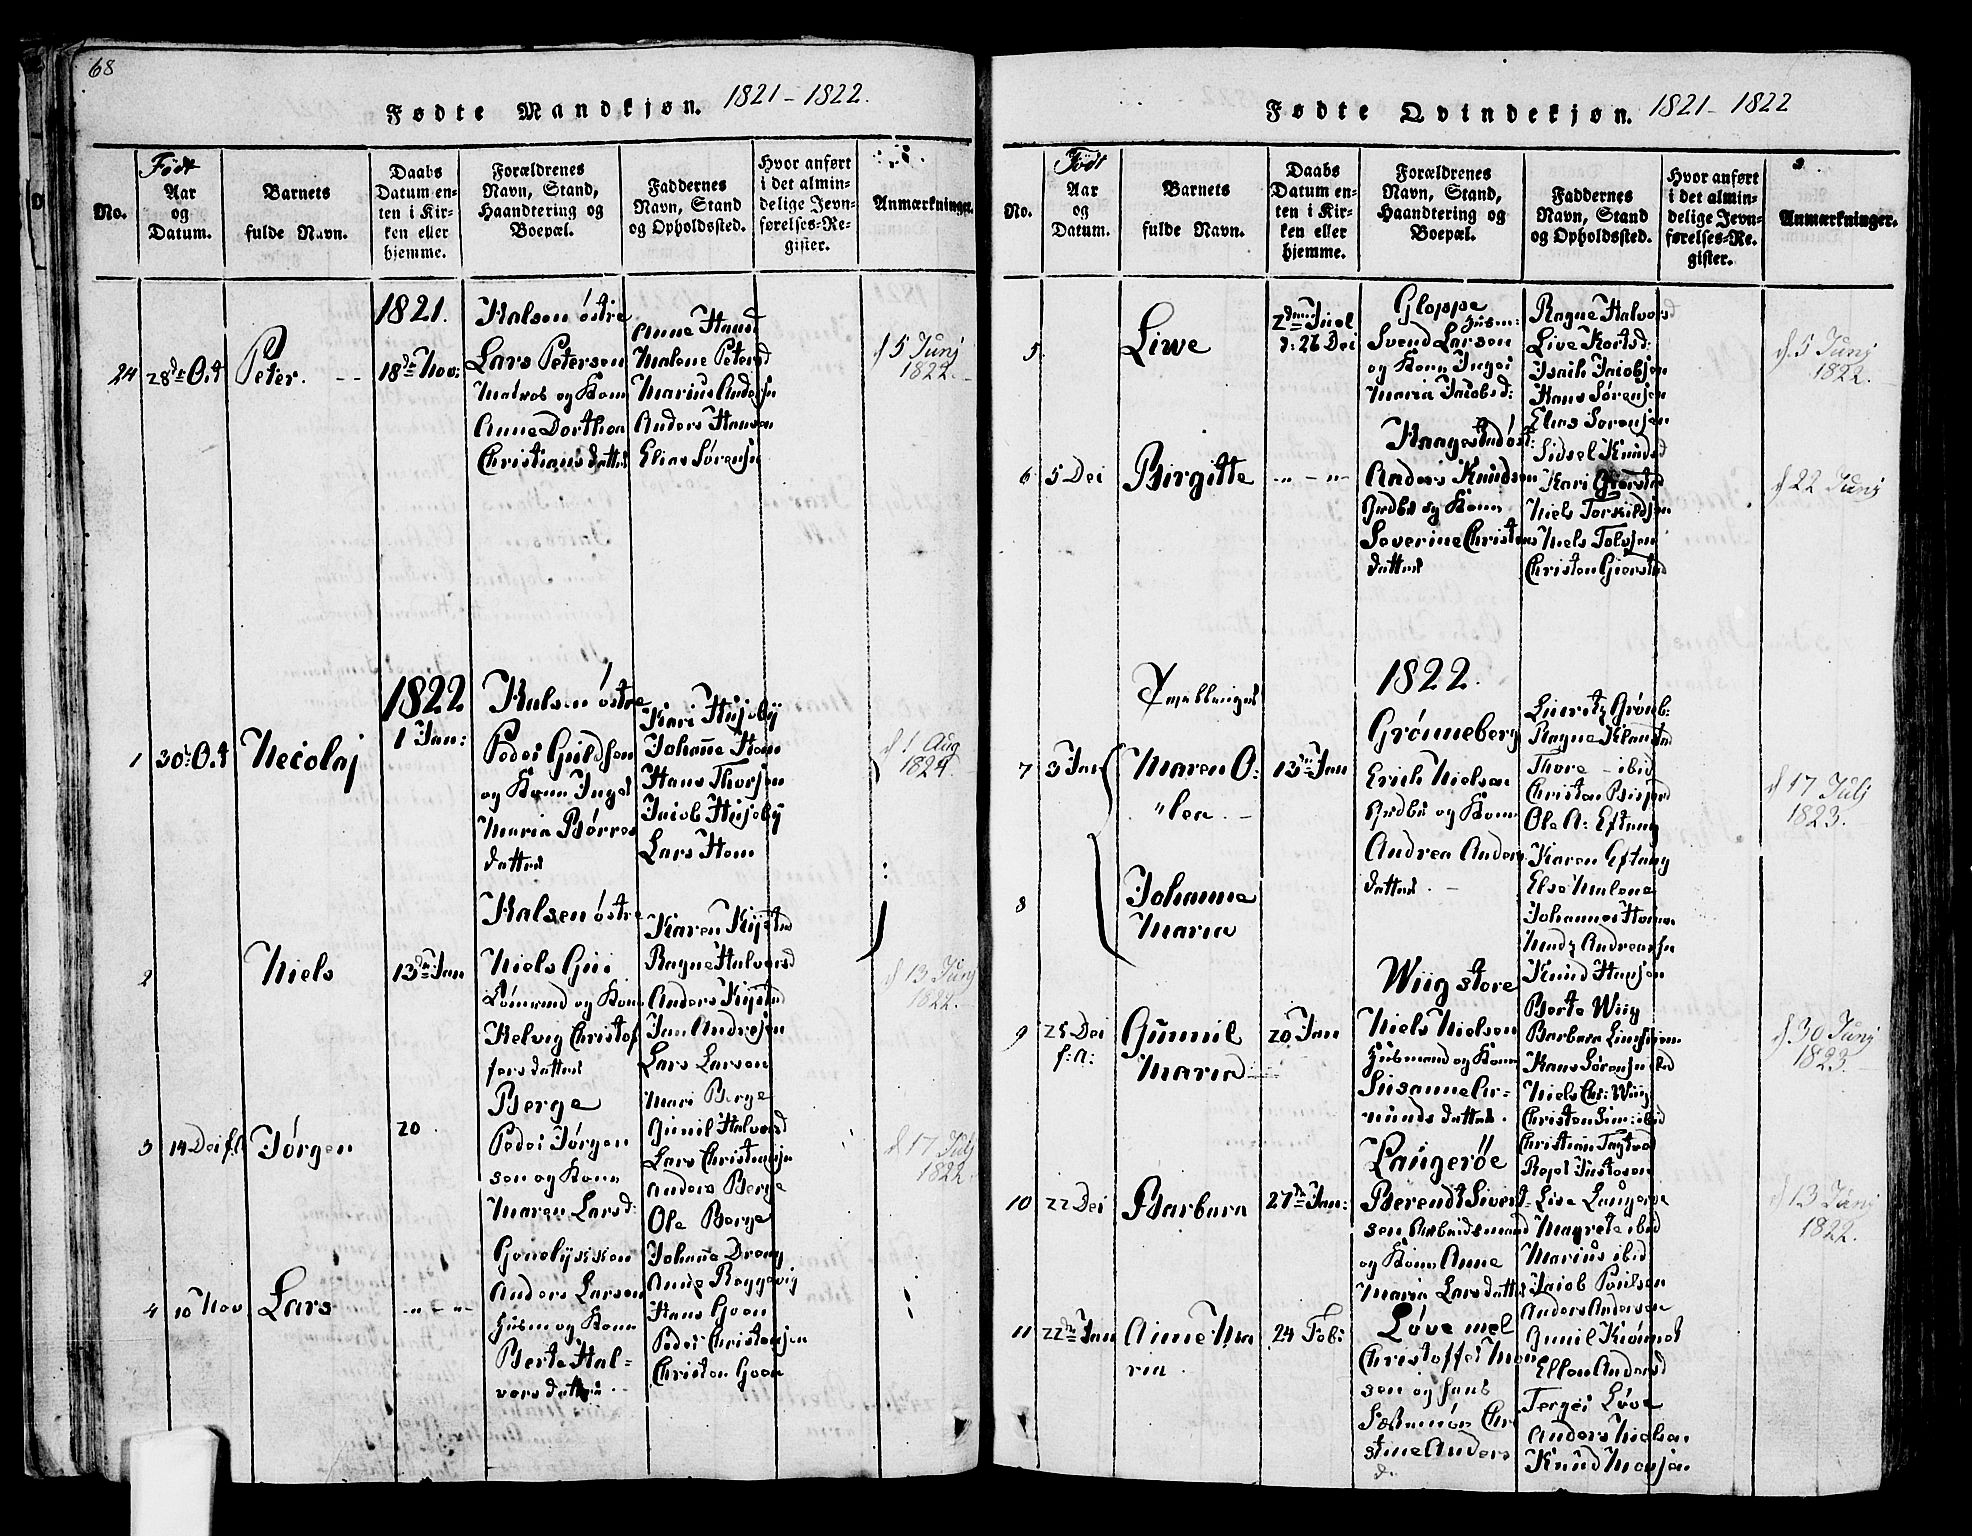 68
Fødte Mandkjøn. 1821-1822.
No.
Födt
Aar
og
Datum.
Barnets
fulde Navn.
Daabs
Datum en-
ten i Kir-
ken eller
hjemme.
Forældrenes
Navn, Stand,
Haandtering og
Boepæl.
Faddernes
Navn, Stand
og Opholdssted.
Hvor anført
i det almin-
delige Jevn-
førelses-Re-
gister.
Anmærkninger.
24
28de Oct
Peter.
1821.
18de Nov:
Halsen østre
Lars Petersen
Matros og Kone
Anne Dorthea
Christiansdatter
Anne Haud
Malene Petersd
Marius Andersen
Anders Hansen
Elias Sørensen
d 5 Junj
1822.
1822
1
30 Oct
Necolaj
1 Jan:
Halsen østre
Peder Guldsen
og Kone Inger
Maria Børres
datter
Kari Husebÿ
Johanne Hem
Hans Thorsen
Jacob Husebÿ
Lars Hem
d 1 Aug
1824
2
Niels
13de Jan
Halsen østre
Niels
og Kone
Helvig Christof
fersdatter
Karen Kijsted
Ragne Halvorsd
Anders Kijsted
Jan Andersen
Lars Larsen
d 13 Junj
1822.
3
14 Dec f.A
Jørgen
20
Berge
Peder Jørgen
sen og Kone
Maren Larsd:
Mari Berge
Gunil Halvorsd
Lars Christiansen
Anders Berge
Ole Berge
d 17 Julj
1822.
4
10 Nov
Lars
- " - " -
Anders Larsen
Husm og Kone
Berte Hal-
vorsdatter
Johanne
Anne
Hans Goen
Peder Christensen
Christen Goen
Fødte Qvindekjøn. 1821-1822
No.
Födt
Aar
og
Datum.
Barnets
fulde Navn.
Daabs
Datum en-
ten i Kir-
ken eller
hjemme.
Forældrenes
Navn, Stand,
Haandtering og
Boepæl.
Faddernes
Navn, Stand
og Opholdssted.
Hvor anført
i det almin-
delige Jevn-
førelses-Re-
gister.
Anmærkninger.
5.
Live
2den Juel
d: 26 Dec
Gloppe
Husm:
Svend Larsen
og Kone Inger
Maria Jacobsd:
Ragne Halvorsd
Live Kortsd:
Isach Jacobsen
Hans Sørensen
Elias Sørensen
d. 5 Junj
1822.
6
5 Dec
Birgitte
- " - " -
Haagestad øst:
Anders Knudsen
Grdbr og Kone
Severine Christens
datter
Sidsel Knudsd
Kari Gjersted
Niels Torkildsen
Niels Tolvsen
Christen Gjersted
d 22 Junj
Tvillinger
1822.
7
3 Jan
Maren O:
"lea.
13de Jan
Grønneberg
Erich Nielsen
Grdbr og Kone
Andrea Anders
datter.
Ragne Klaastad
Thore - ibid
Christen
Ole A: Eftang
d 17 Julj
1823.
8
Johanne
Maria
Karen Eftang
Else Malene
Johannes Hansen
Andreasen
Knud Hansen
9
25 Dec
f: A:
Gunnil
Maria
20 Jan
Wiig store
Niels Nielsen
Husmand og Kone
Susanne Gu-
nundsdatter.
Berte Wiig
Barbara
Hans Sørensen
Niels Chr: Wiig
Christen ibid
d 30 Junj
1823.
10
22 Dec
Barbara
27de Jan:
Laugerøe
Berendt Siver
sen Arbeidsmand
og Kone Anne
Maria Larsdatter
Christian
Live Laugerøe
Magrete ibid
Marius ibid
Jacob Poulsen
Anders Andersen
d 13 Junj
1822.
11
22de Jan
Anne Ma
ria
24 Feb:
Løve mel
Christoffer
sen og Hans
Chri
stine Anders
d.
Gunil
Ellen Andersd
Terger Løve
Anders Nielsen
Knud